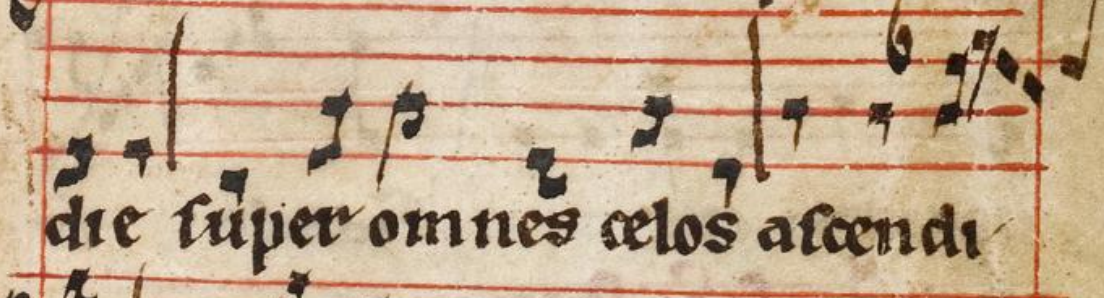 die ſuper omnes celos aſcendi